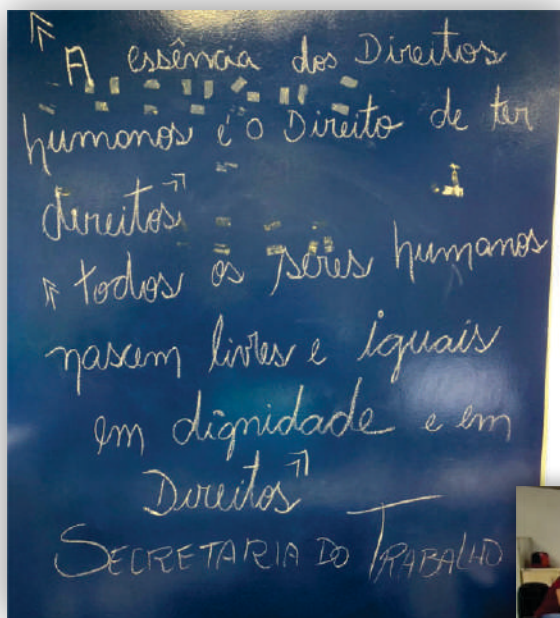 "A essência dos Direitos
humanos é o Direito de ter
direitos"
"todos os seres humanos
nascem livres e iguais
em dignidade e em
Direitos"
SECRETARIA DO TRABALHO